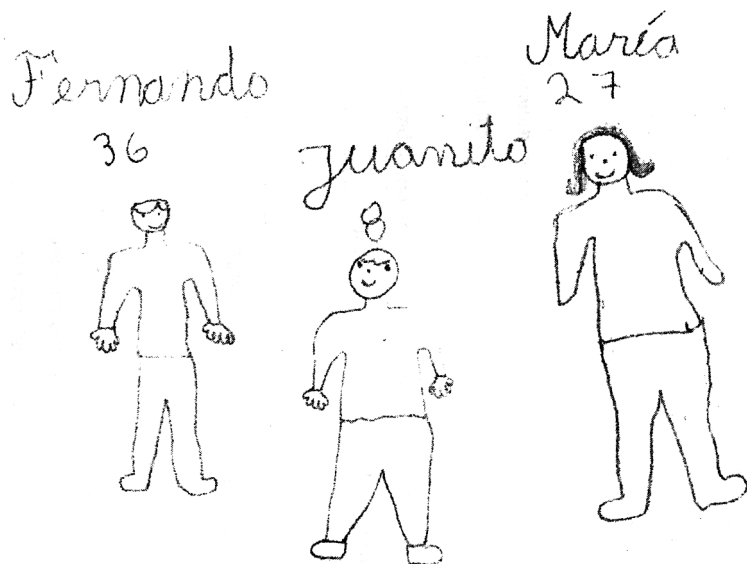 Fernando
36
Juanito
8
María
27